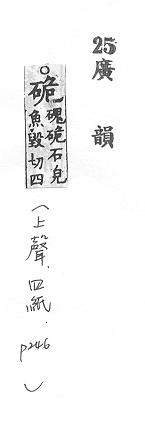 25廣韻
○硊磈硊石皃
魚毀切四
(上聲.四紙.p246)